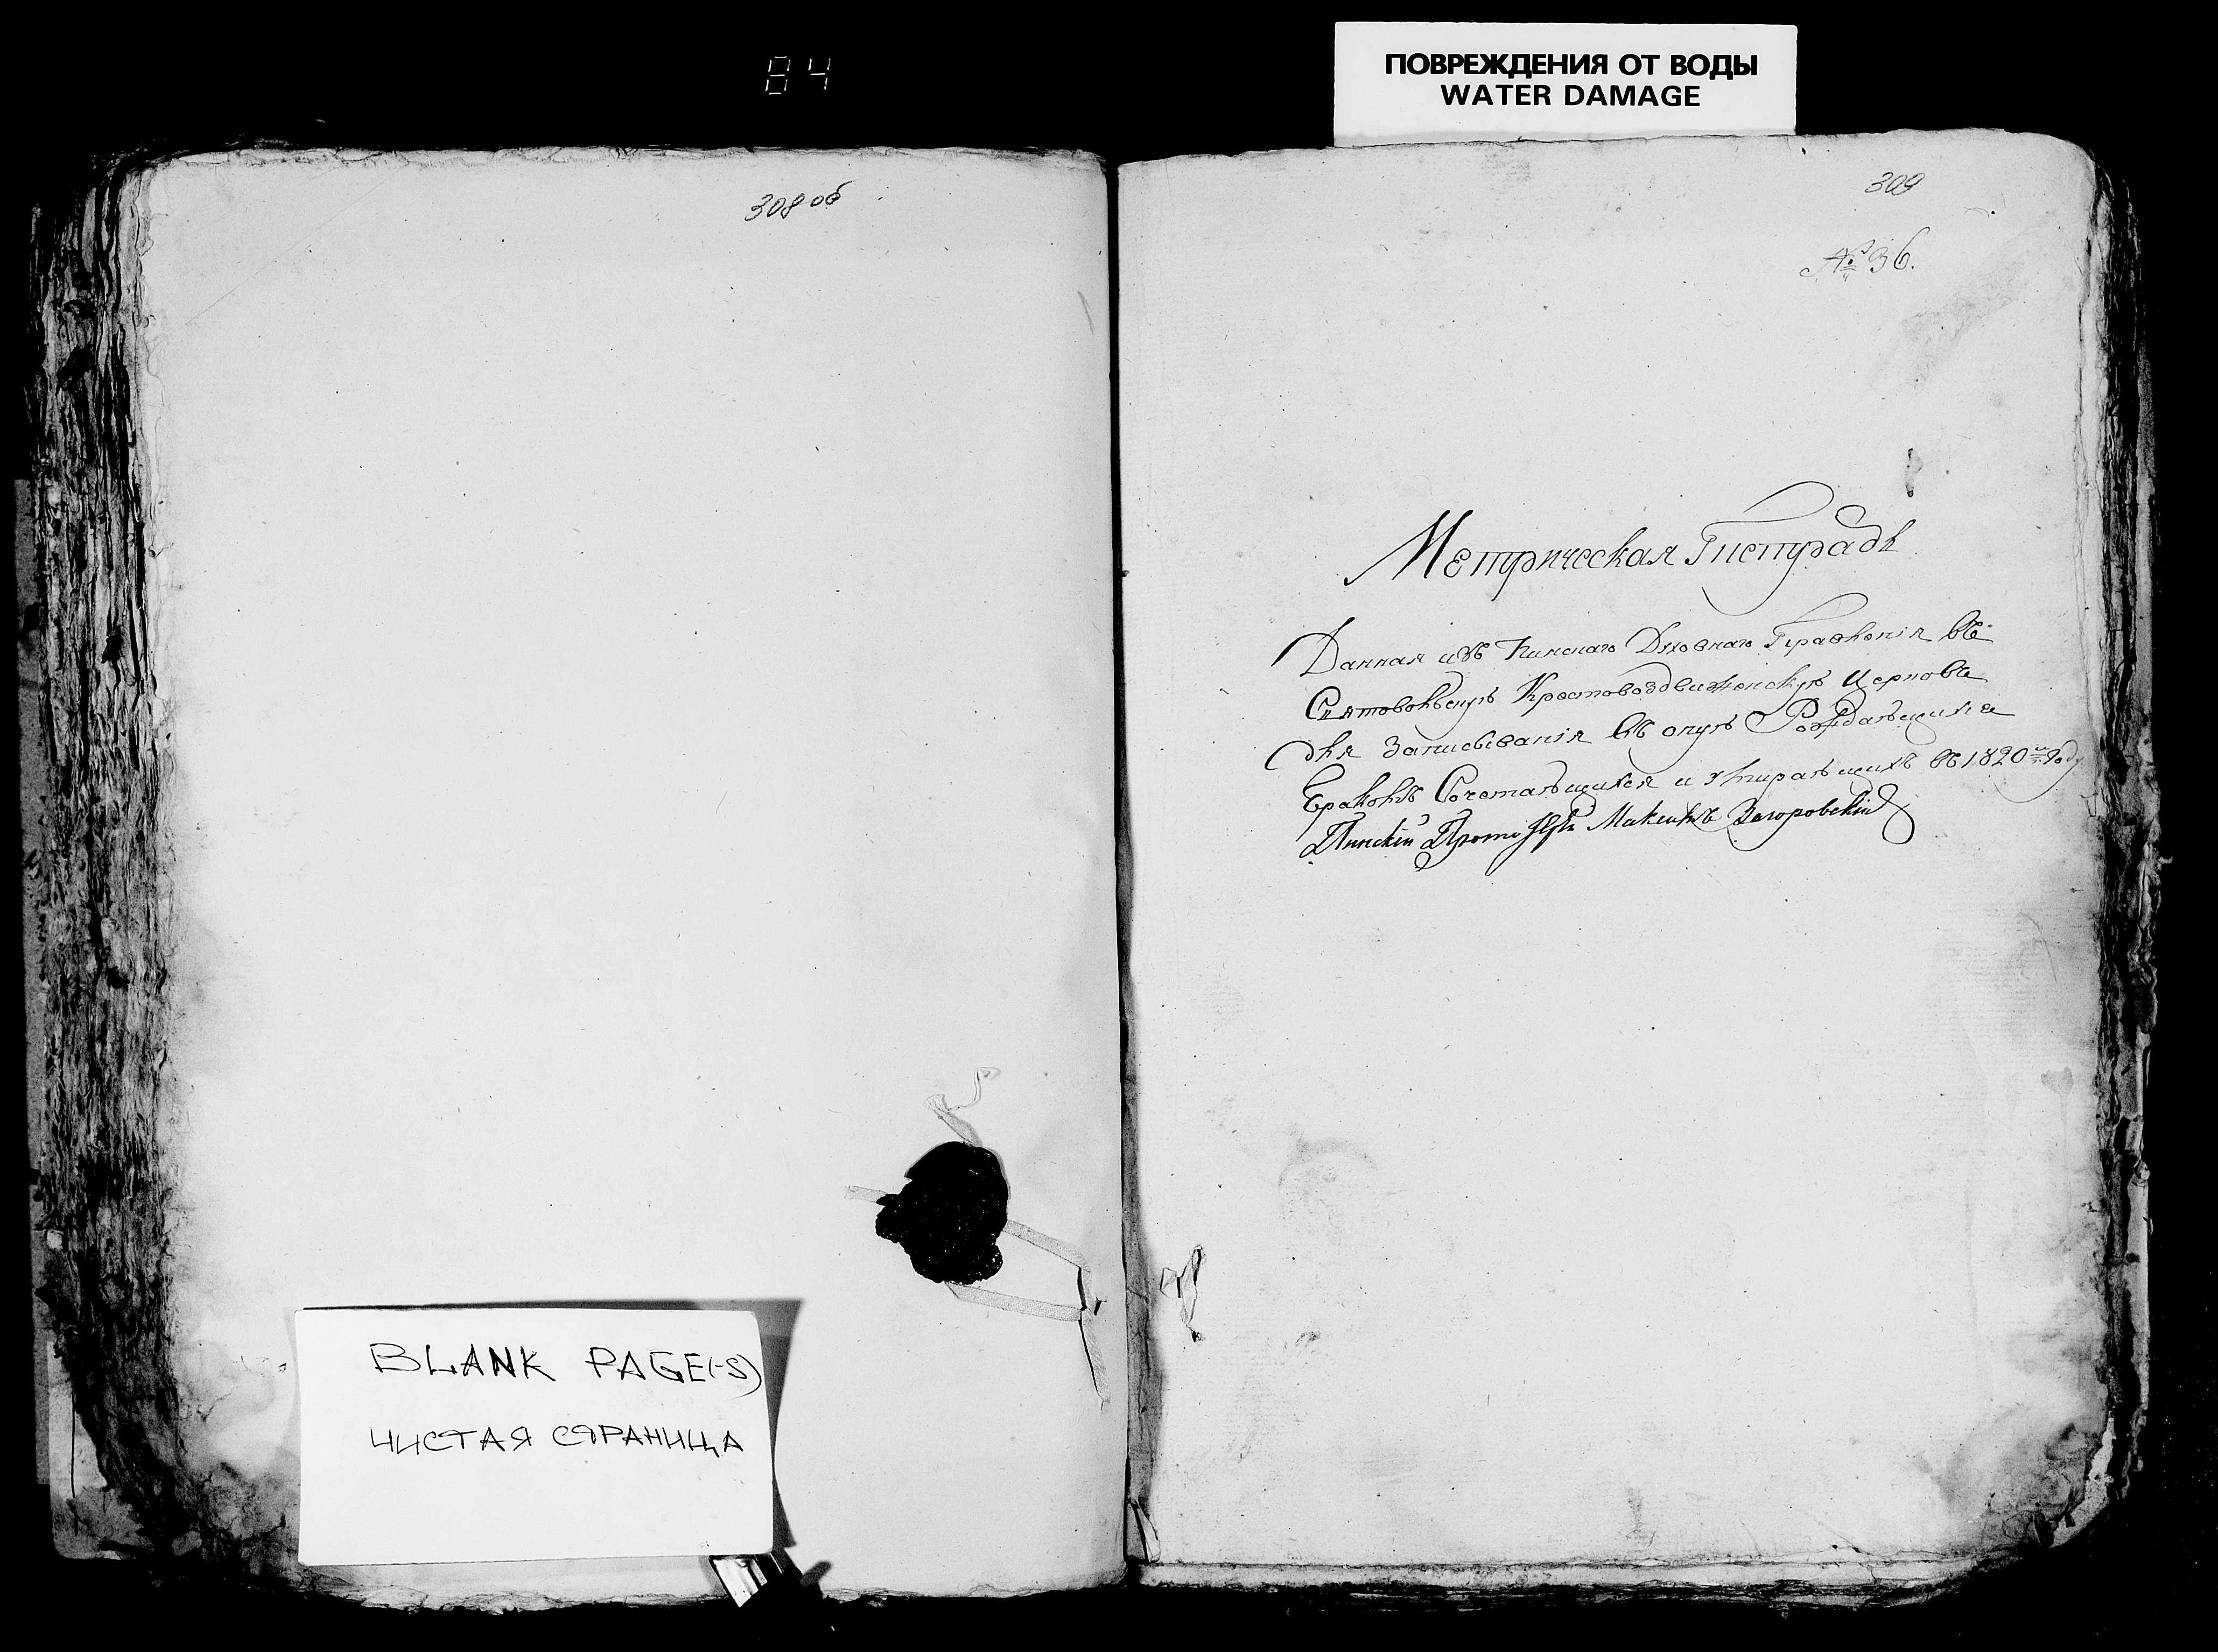 84
ПОВРЕЖДЕНИЯ ОТ ВОДЫ
WATER DAMAGE
308 об
309
№ 36.
Метрическая Тетрадь
Данная изъ Пинскаго Духовнаго Правленія въ
Крестовоздвиженскую Церковь
для записыванія въ оную Раждающихся
Бракомъ Сочетающихся и умирающихъ въ 1820м Году
Пинскій Протоіерей Максимъ Загоровскій
BLANK PAGE(-S)
ЧИСТАЯ СТРАНИЦА